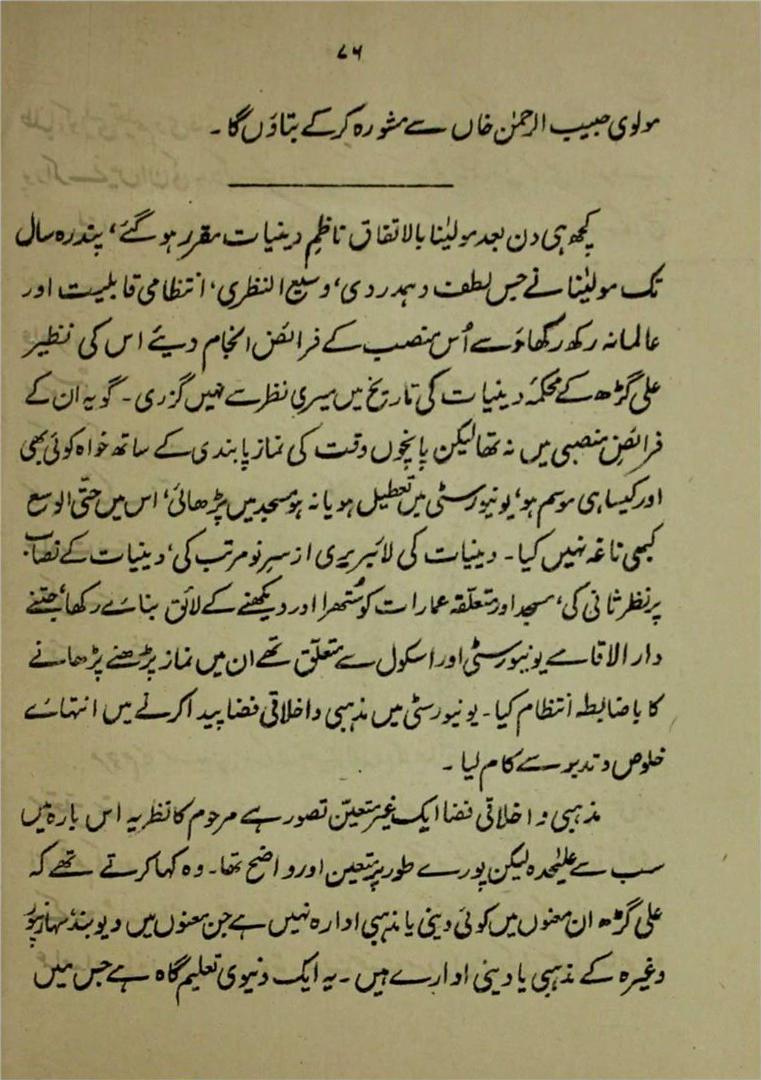 ۷۶
مولوی حبیب الرحمٰن خاں سے مشورہ کرکے بتاؤں گا۔
کچھ ہی دن بعد مولیٰنا بالاتفاق ناظمِ دینیات مقرر ہو گئے، پندرہ سال
تک مولیٰنا نے جس لطف و ہمدردی، وسیع النظری، انتظامی قابلیت اور
عالمانہ رکھ رکھاؤ سے اُس منصب کے فرائض انجام دیئے اس کی نظیر
علی گڑھ کے محکمۂ دینیات کی تاریخ میں میری نظر سے نہیں گزری۔ گو یہ ان کے
فرائضِ منصبی میں نہ تھا لیکن پانچوں وقت کی نماز پابندی کے ساتھ خواہ کوئی بھی
اور کیسا ہی موسم ہو، یونیورسٹی میں تعطیل ہو یا نہ ہو مسجد میں پڑھائی، اس میں حتّی الوسع
کبھی ناغہ نہیں کیا۔ دینیات کی لائبریری از سرِ نو مرتب کی، دینیات کے نصاب
پر نظر ثانی کی، مسجد اور متعلّقہ عمارات کو سُتھرا اور دیکھنے کے لائق بنائے رکھا، جتنے
دار الاقامے یونیورسٹی اور اسکول سے متعلّق تھے ان میں نماز پڑھنے پڑھانے
کا باضابطہ انتظام کیا۔ یونیورسٹی میں مذہبی و اخلاقی فضا پیدا کرنے میں انتہائے
خلوص و تدبر سے کام لیا۔
مذہبی و اخلاقی فضا ایک غیر متعیّن تصور ہے مرحوم کا نظریہ اس بارہ میں
سب سے علیٰحدہ لیکن پورے طور پر متعین اور واضح تھا۔ وہ کہا کرتے تھے کہ
علی گڑھ ان معنوں میں کوئی دینی یا مذہبی ادارہ نہیں ہے جن معنوں میں دیوبند، سہارنپور
وغیرہ کے مذہبی یا دینی ادارے ہیں۔ یہ ایک دنیوی تعلیم گاہ ہے جس میں